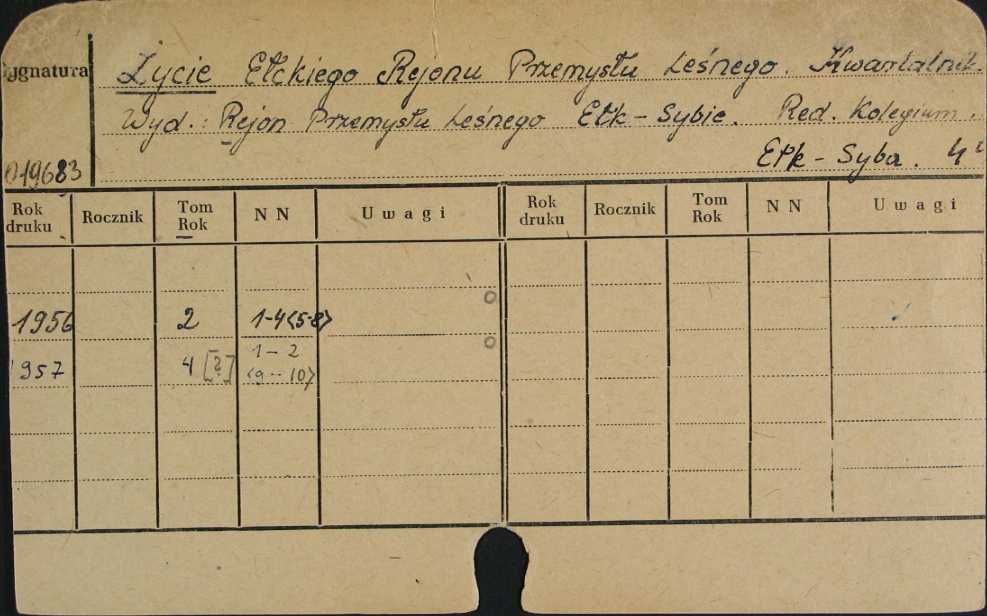 ygnatura
Życie Ełckiego Rejonu Przemysłu Leśnego. Kwartalnik.
Wyd.: Rejon Przemysłu Leśnego Ełk - Sybie. Red. Kolegium.
Ełk - Syba. 4°
019683
Rok druku Rocznik Tom Rok N N Uwagi Rok druku Rocznik Tom Rok N N Uwagi
1956 2 1-4<5-8>
1957 4 [?] 1-2
<9-10>